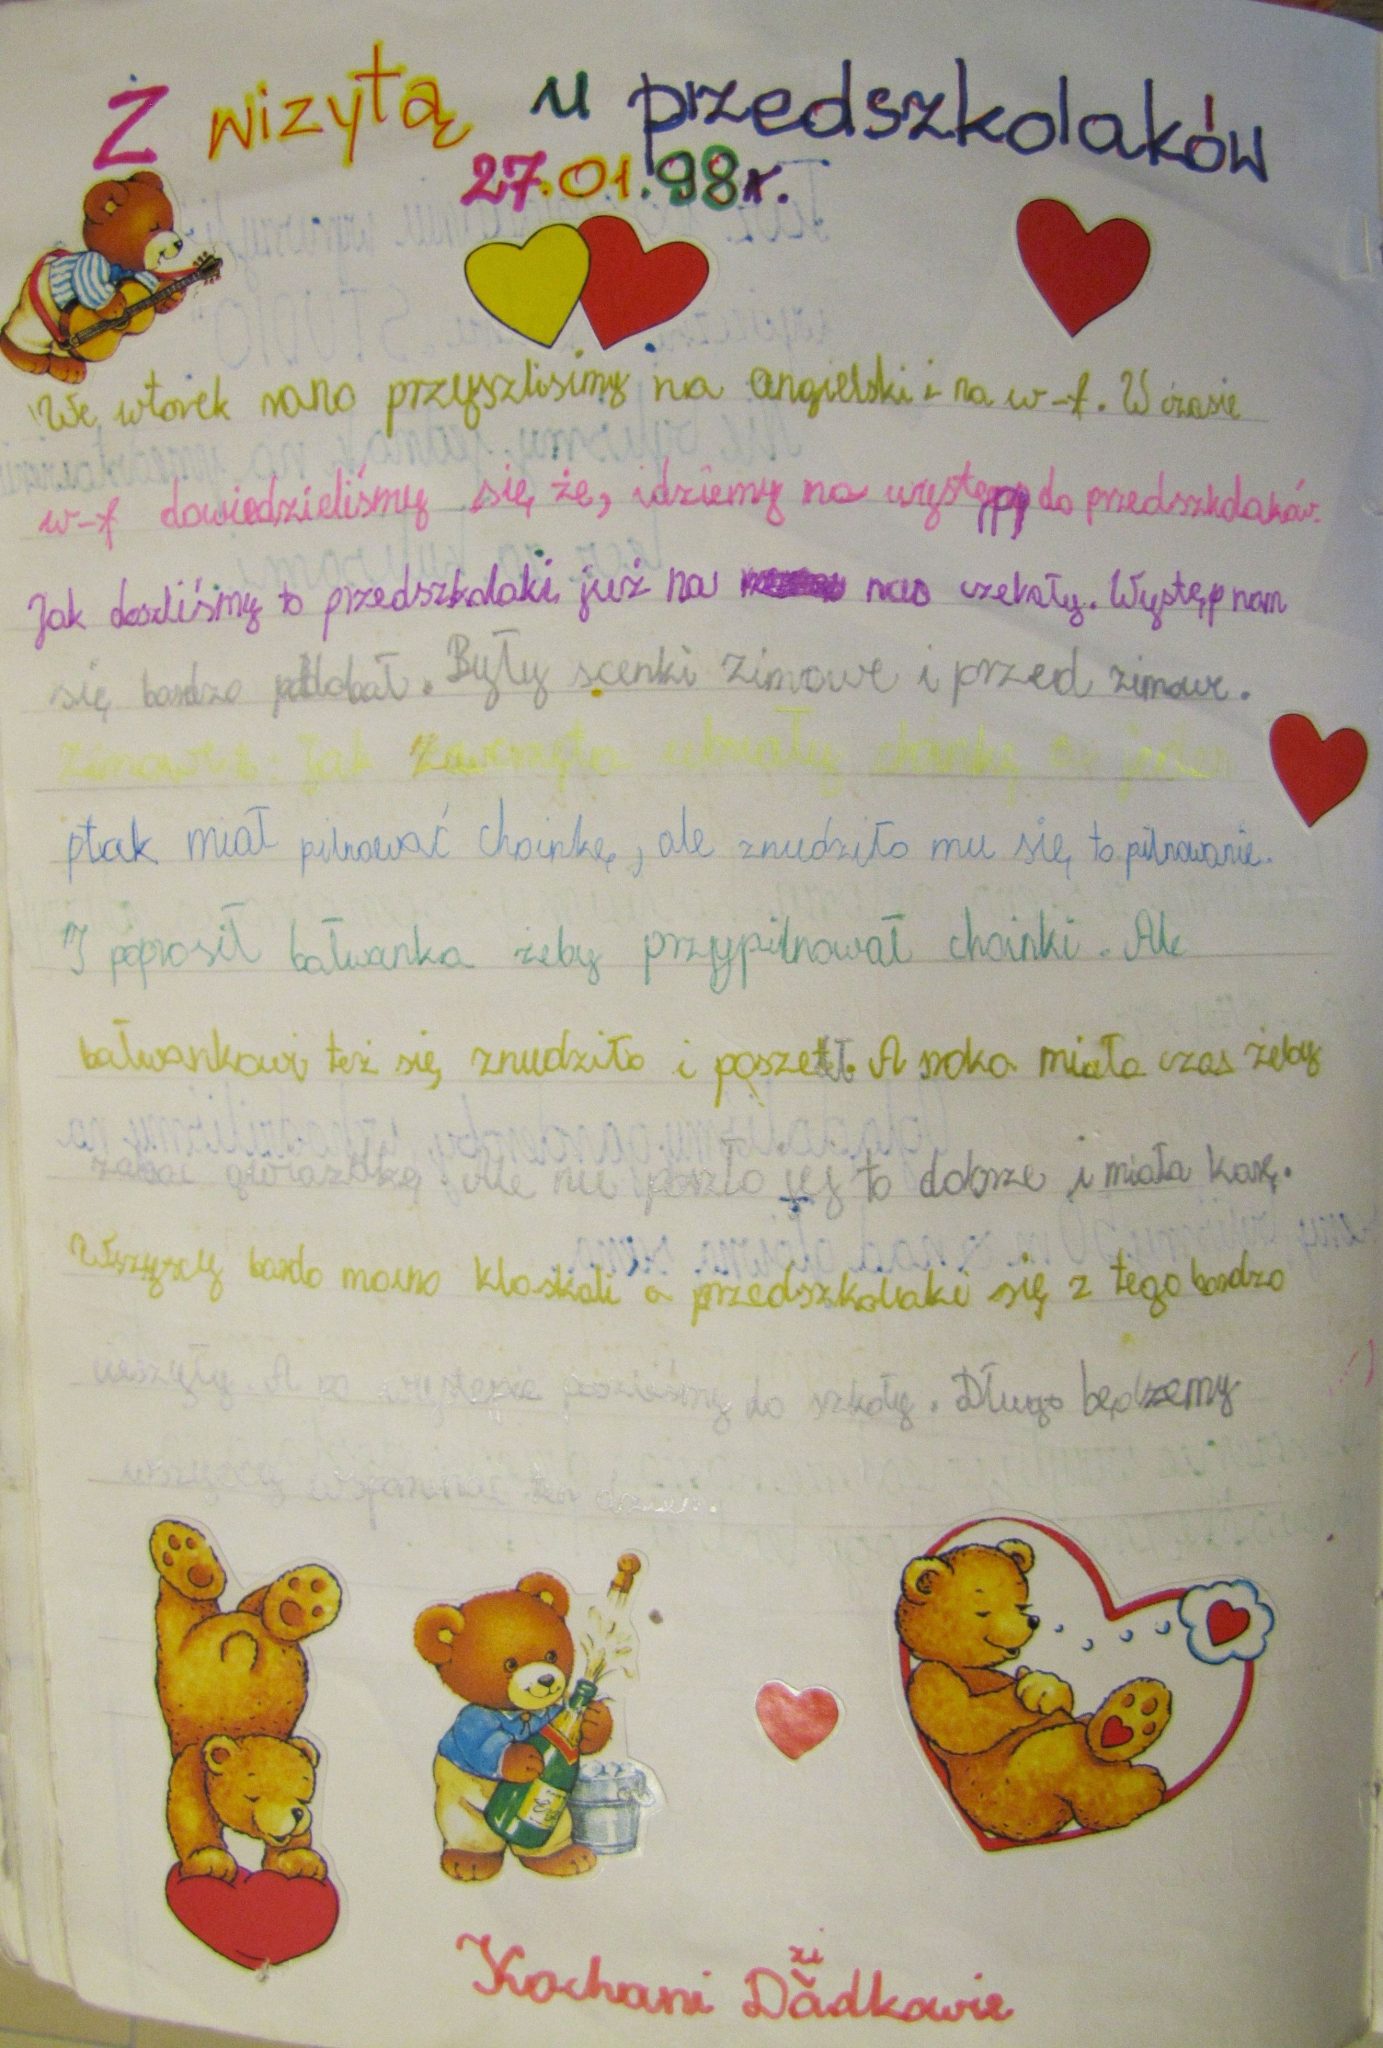 Z wizytą u przedszkolaków
27.01.98r.
We wtorek rano przyszlisimy na angielski i na w-f. W czasie
w-f dowiedzieliśmy się że, idziemy na występy do przedszkolaków.
Jak doszliśmy to przedszkolaki już na nas czekały. Występ nam
się bardzo podobał. Były scenki zimowe i przed zimowe.
Zimowe: Jak ubrały choinkę jeden
ptak miał pilnować choinkę, ale znudziło mu się to pilnowanie.
I poprosił bałwanka żeby przypilnował choinki. Ale
bałwankowi też się znudziło i poszedł. A sroka miała czas żeby
zabrać gwiazdkę, ale nie poszło jej to dobrze i miała karę.
Wszyscy bardo mocno kloskali a przedszkolaki się z tego bardzo
cieszyły. A po występie poszliśmy do szkoły. Długo będziemy
wszyscy wspominać ten dzień.
zi
Kochani Dadkowie